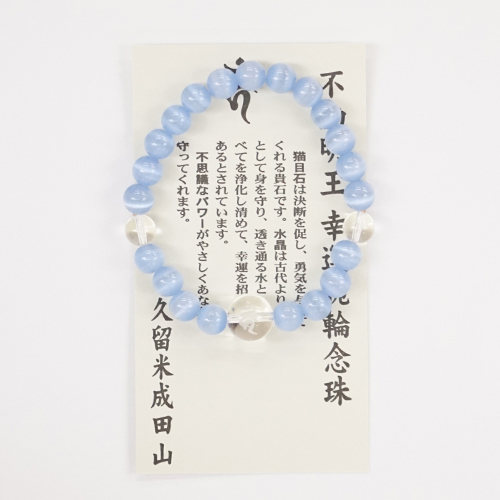 不動明王 幸運腕輪念珠
猫目石は決断を促し、勇気を
くれる貴石です。水晶は古代より
として身を守り、透き通る水と
べてを浄化し清めて、幸運を招
あるとされています。
不思議なパワーがやさしくあな
守ってくれます。
久留米成田山